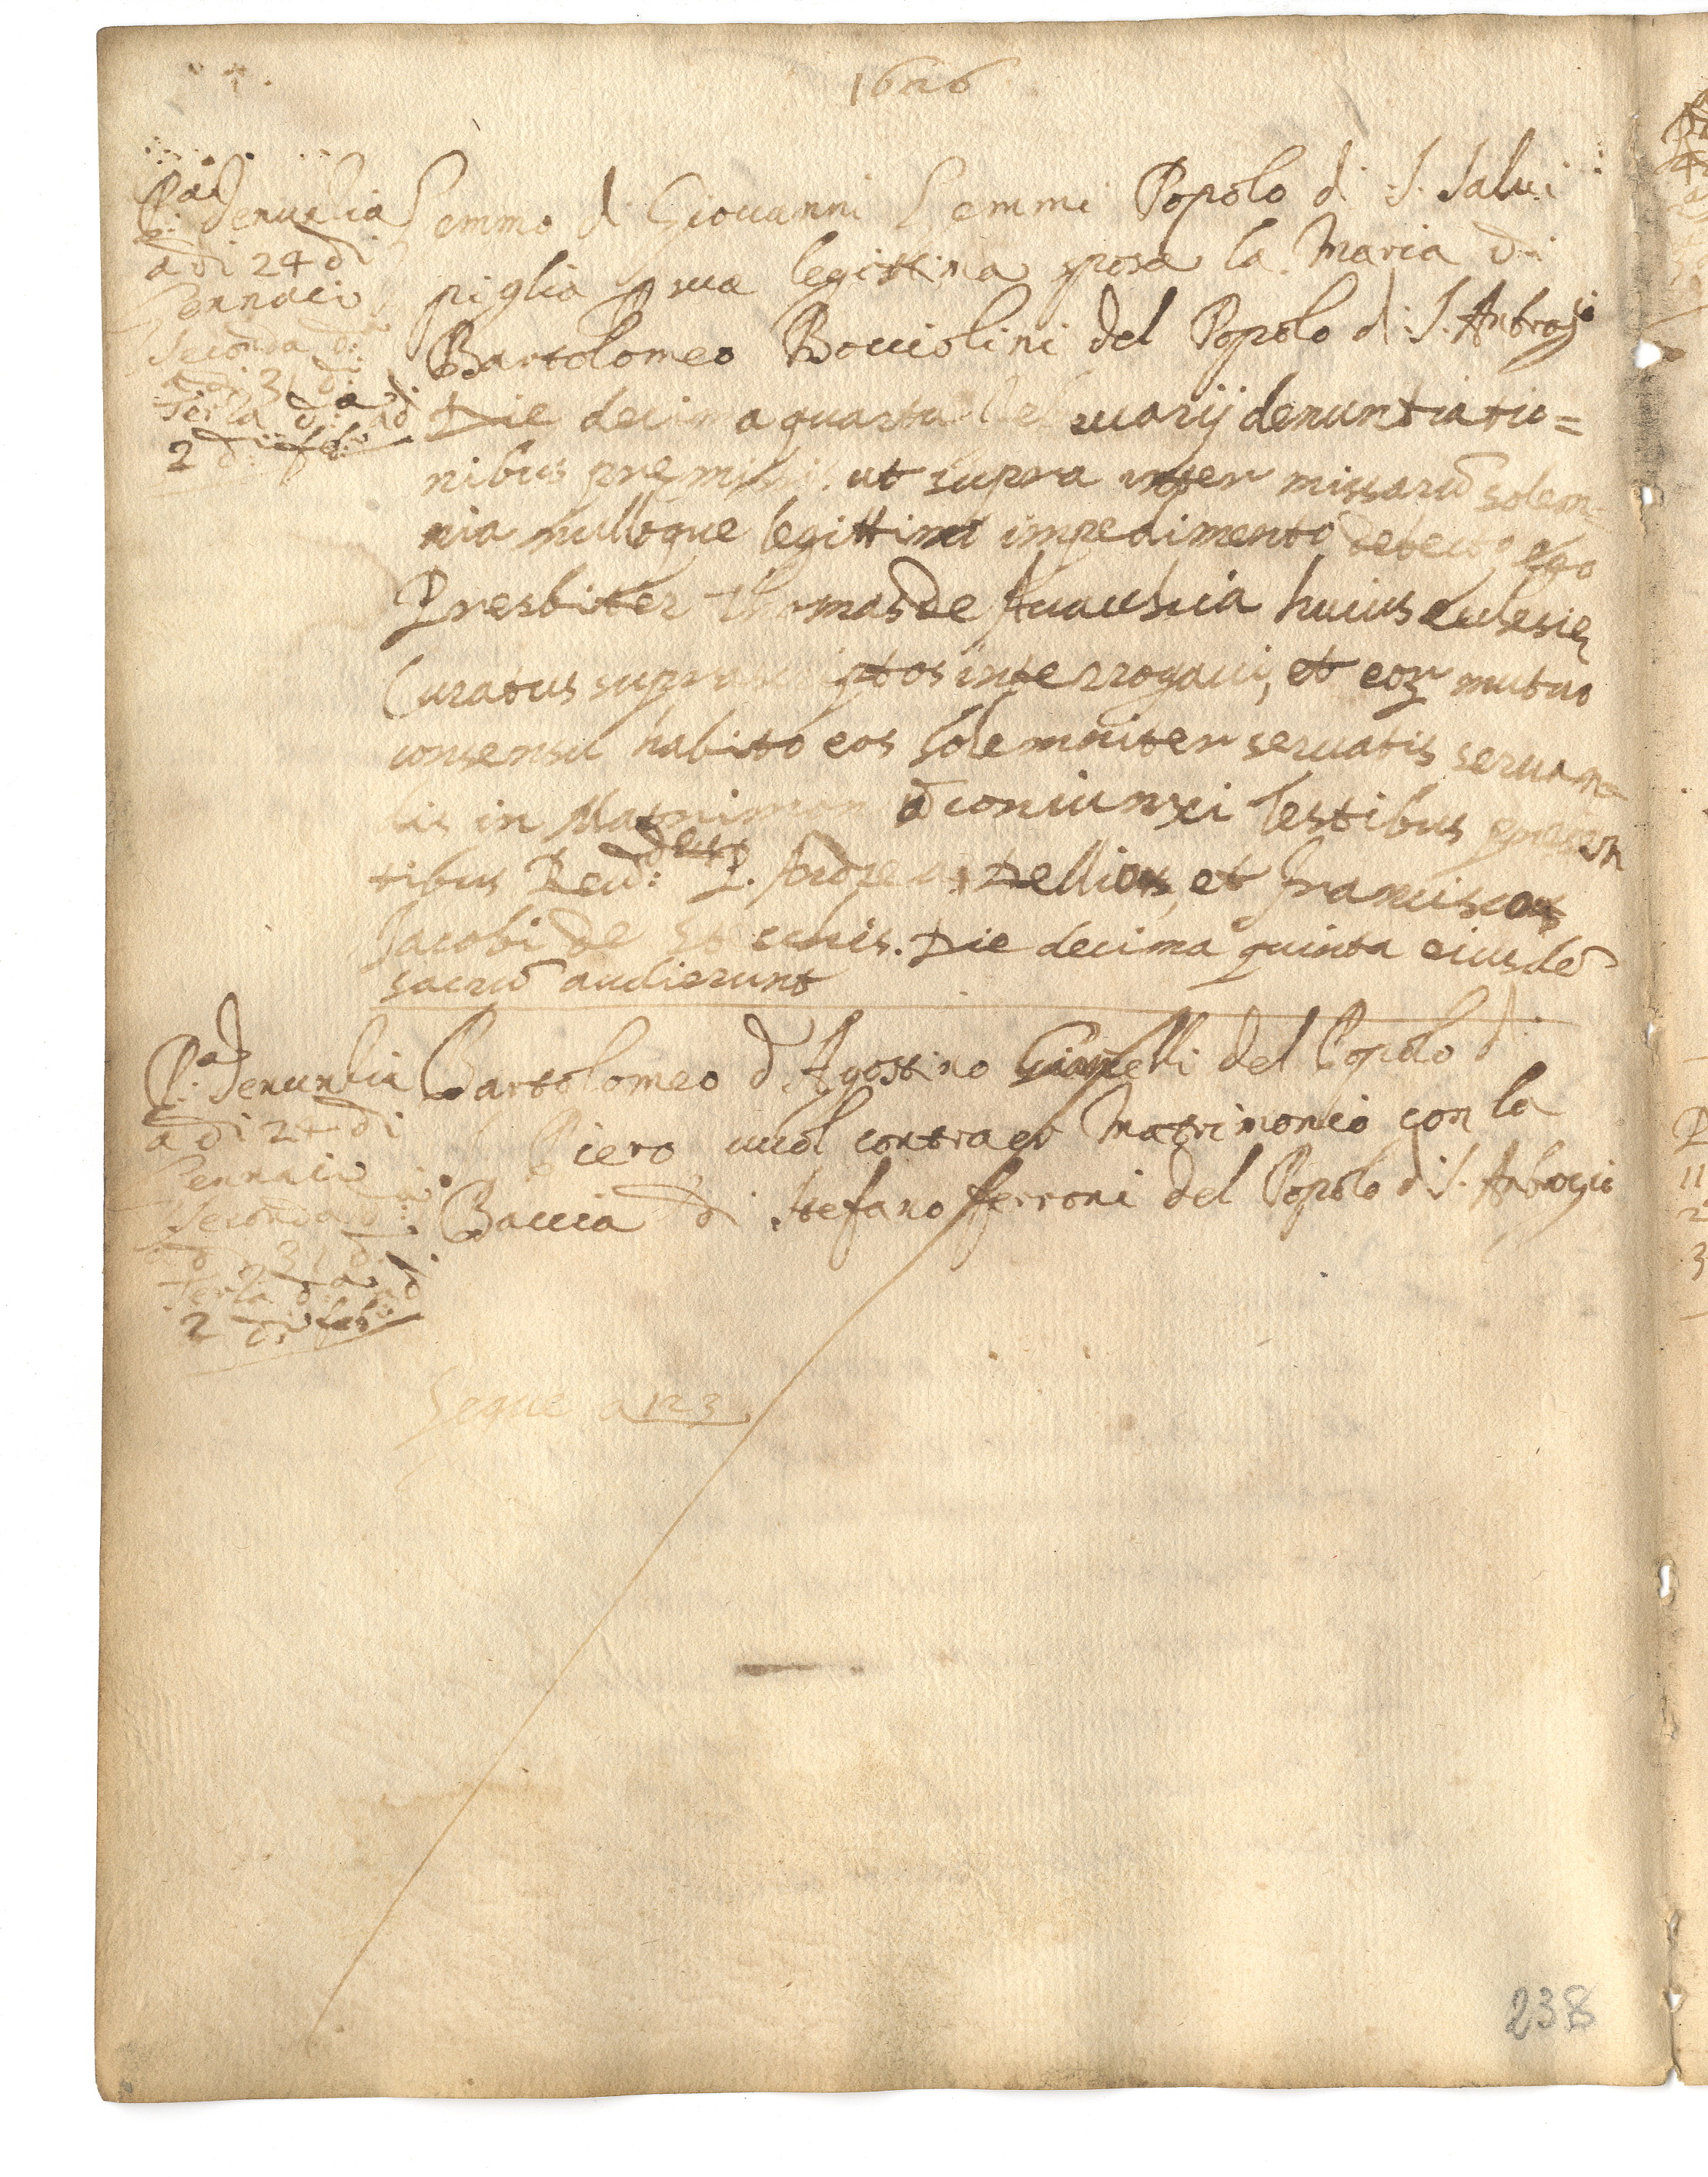 1626
P.a denuntia
adi 24 di
Gennaio
Seconda d:
adi 31 d:
Terza d:a adi
2 di feb:o
Lemmo di Giovanni Lemmi Popolo di S. Salvi
piglia p sua legittima sposa la Maria di
Bartolomeo Bocciolini del Popolo di S. Anbrogio
Die decima quarta februarij denuntiatio=
nibus premissis ut supra inter missarũ solem=
nia nulloque legittimo impedimento detecto ego
Presbiter Thomas de huius eclesie
Curatus suprascriptos interrogavi, et eoꝝ mutuo
consensu habito eos solemniter servatis servan=
dis in Matrimonium coniunxi testibus presen
tibus Revd: P. et Franciscus
Jacobi de Stecchis. Die decima quinta eiusdẽ
sacrũ audierunt
P.a denuntia
adi 24 di
Gennaio
Seconda d:a
ad 31 d:
Terza d:a ad
2 di feb:
Bartolomeo d Agostino del Popolo d
S. Piero vuol contraer Matrimonio con la
Baccia di Stefano ferroni del Popolo di S. Anbrogio
Segue a 123
238